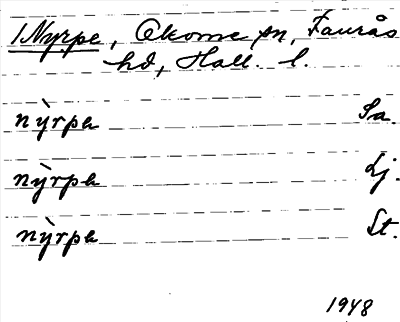 1 Nyrpe, Okome sn, Faurås
hd, Hall. l.
nỳrpa Sa.
nỳrpa Lj.
nỳrpa St.
1948